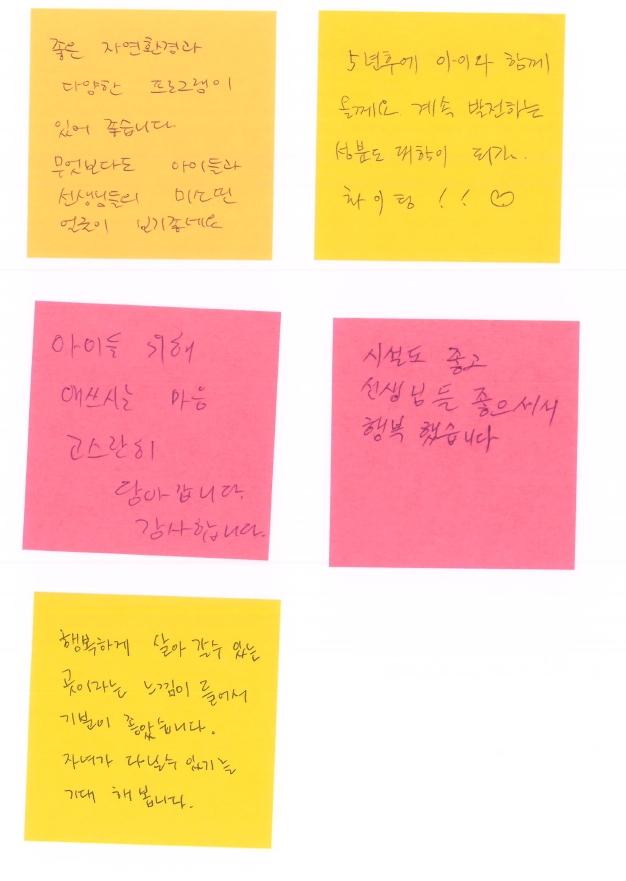 좋은 자연환경과
다양한 프로그램이
있어 좋습니다
무엇보다도 아이들과
선생님들의 미소띤
얼굴이 보기좋네요
5년후에 아이와 함께
올께요. 계속 발전하는
성분도 대학이 되길.
화이팅!! ♡
아이들 위해
애쓰시는 마음
고스란히
담아갑니다.
감사합니다.
시설도 좋고
선생님들 좋으셔서
행복 했습니다
행복하게 살아 갈수 있는
곳이라는 느낌이 들어서
기분이 좋았습니다.
자녀가 다닐수 있기를
기대 해 봅니다.